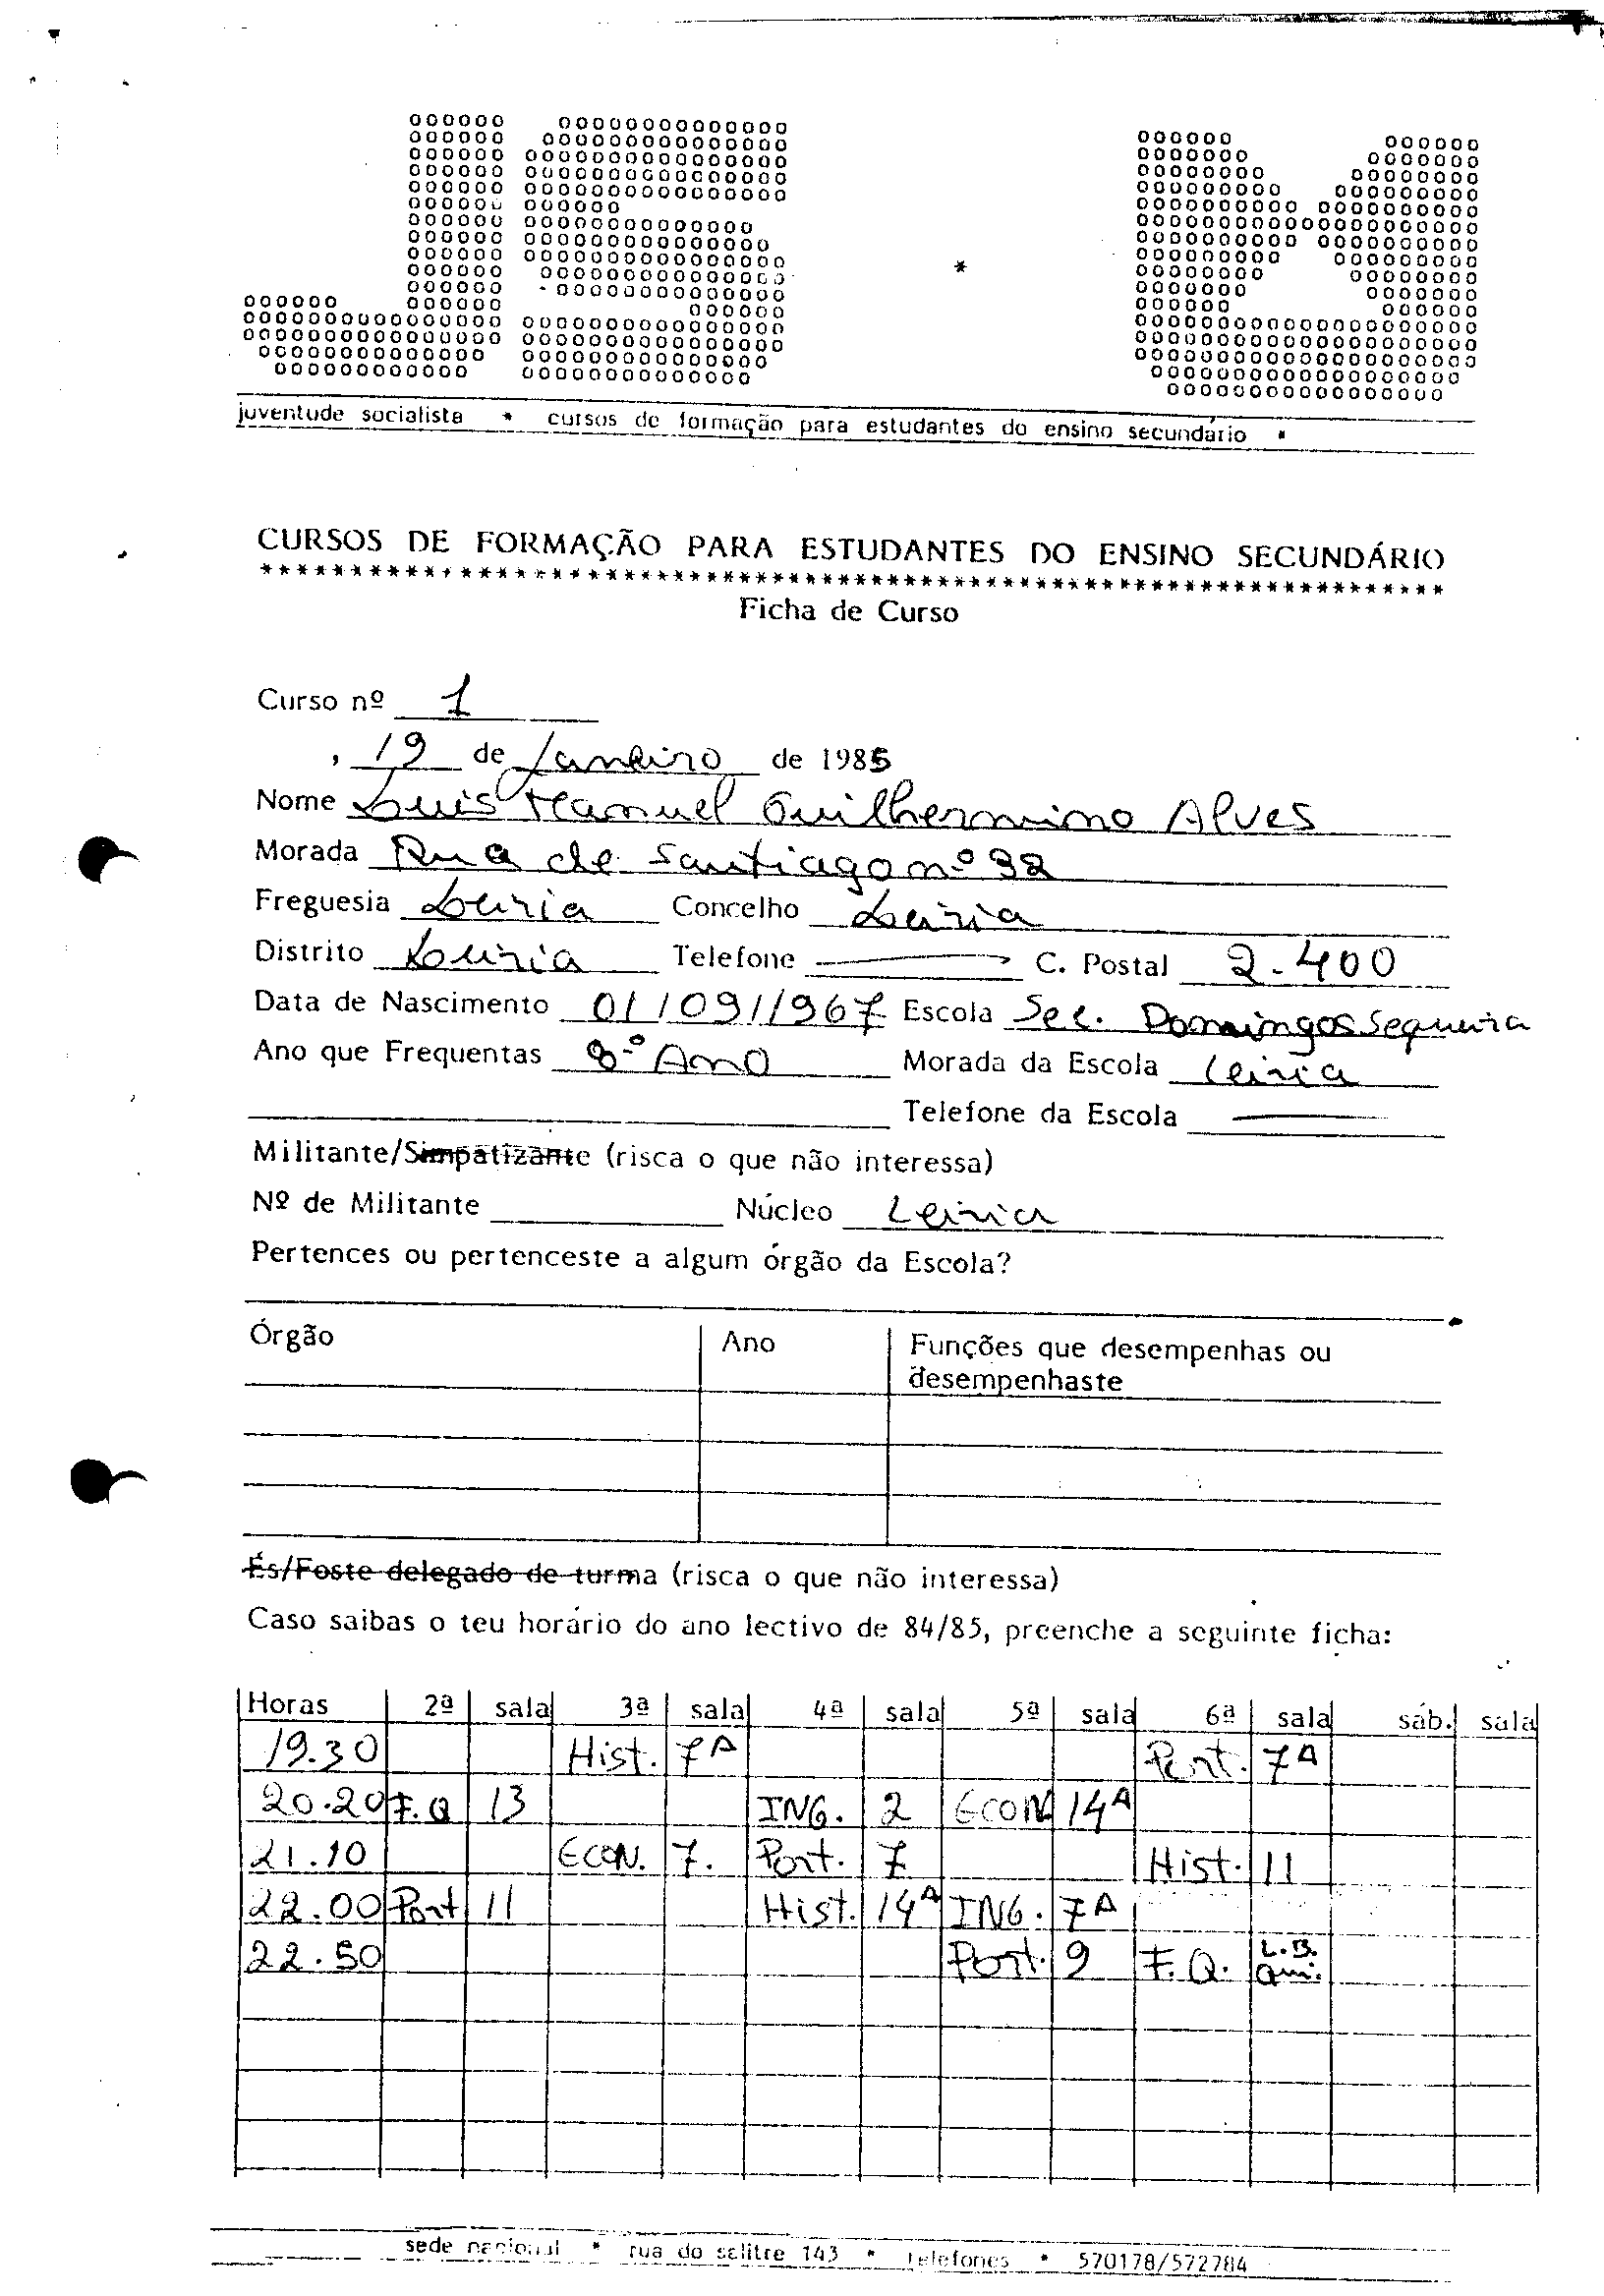 JS * M
juventude socialista * cursos de formação para estudantes do ensino secundário *
CURSOS DE FORMAÇÃO PARA ESTUDANTES DO ENSINO SECUNDÁRIO
Ficha de Curso
Curso nº 1
, 19 de Janeiro de 1985
Nome Luis Manuel Guilhermino Alves
Morada Rua de Santiago nº 32
Freguesia Leiria Concelho Leiria
Distrito Leiria Telefone C. Postal 2.400
Data de Nascimento 01/09/1967 Escola Sec. Domingos Sequeira
Ano que Frequentas 8º Ano Morada da Escola Leiria
Telefone da Escola
Militante/Simpatizante (risca o que não interessa)
Nº de Militante Núcleo Leiria
Pertences ou pertenceste a algum órgão da Escola?
Órgão Ano Funções que desempenhas ou
desempenhaste
És/Foste delegado de turma (risca o que não interessa)
Caso saibas o teu horário do ano lectivo de 84/85, preenche a seguinte ficha:
Horas 2ª sala 3ª sala 4ª sala 5ª sala 6ª sala sáb. sala
19.30 Hist. 7A Port. 7A
20.20 F.Q 13 ING. 2 ECON 14A
21.10 ECON. 7. Port. 7 Hist. 11
22.00 Port 11 Hist. 14A ING. 7A
22.50 Port. 9 F.Q. L.B. Qui.
sede nacional * rua do salitre 143 * telefones * 570178/572784